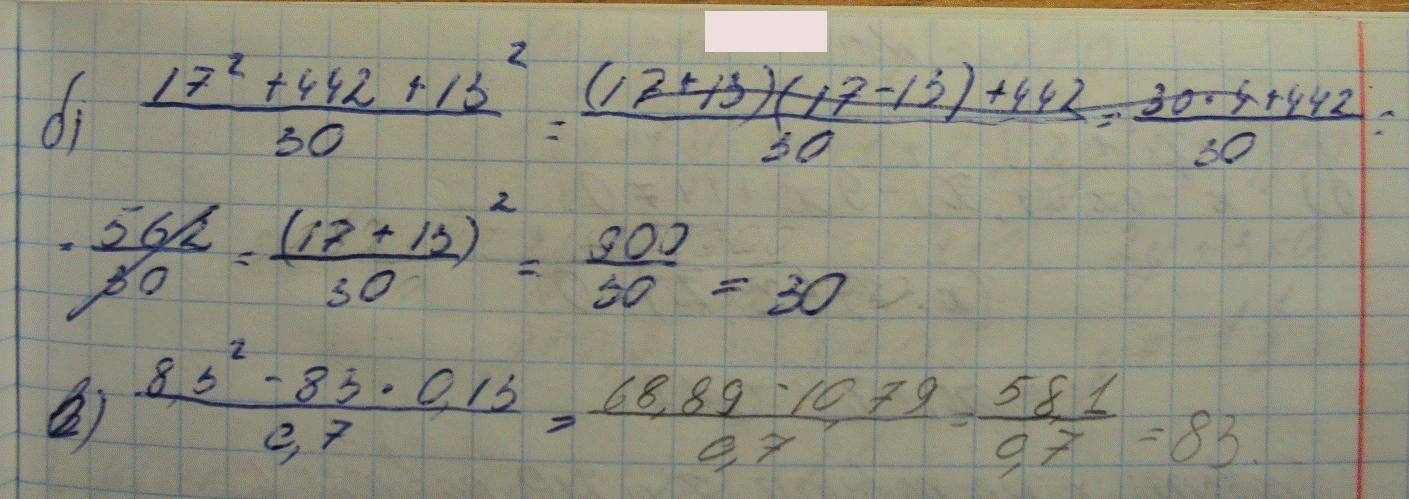 б) (17² + 442 + 13²)/30 = ((17 + 13)(17 - 13) + 442)/30 = (30 · 4 + 442)/30 =
= 562/30 = (17 + 13)²/30 = 900/30 = 30
в) (8,3² - 83 · 0,13)/0,7 = (68,89 - 10,79)/0,7 = 58,1/0,7 = 83.